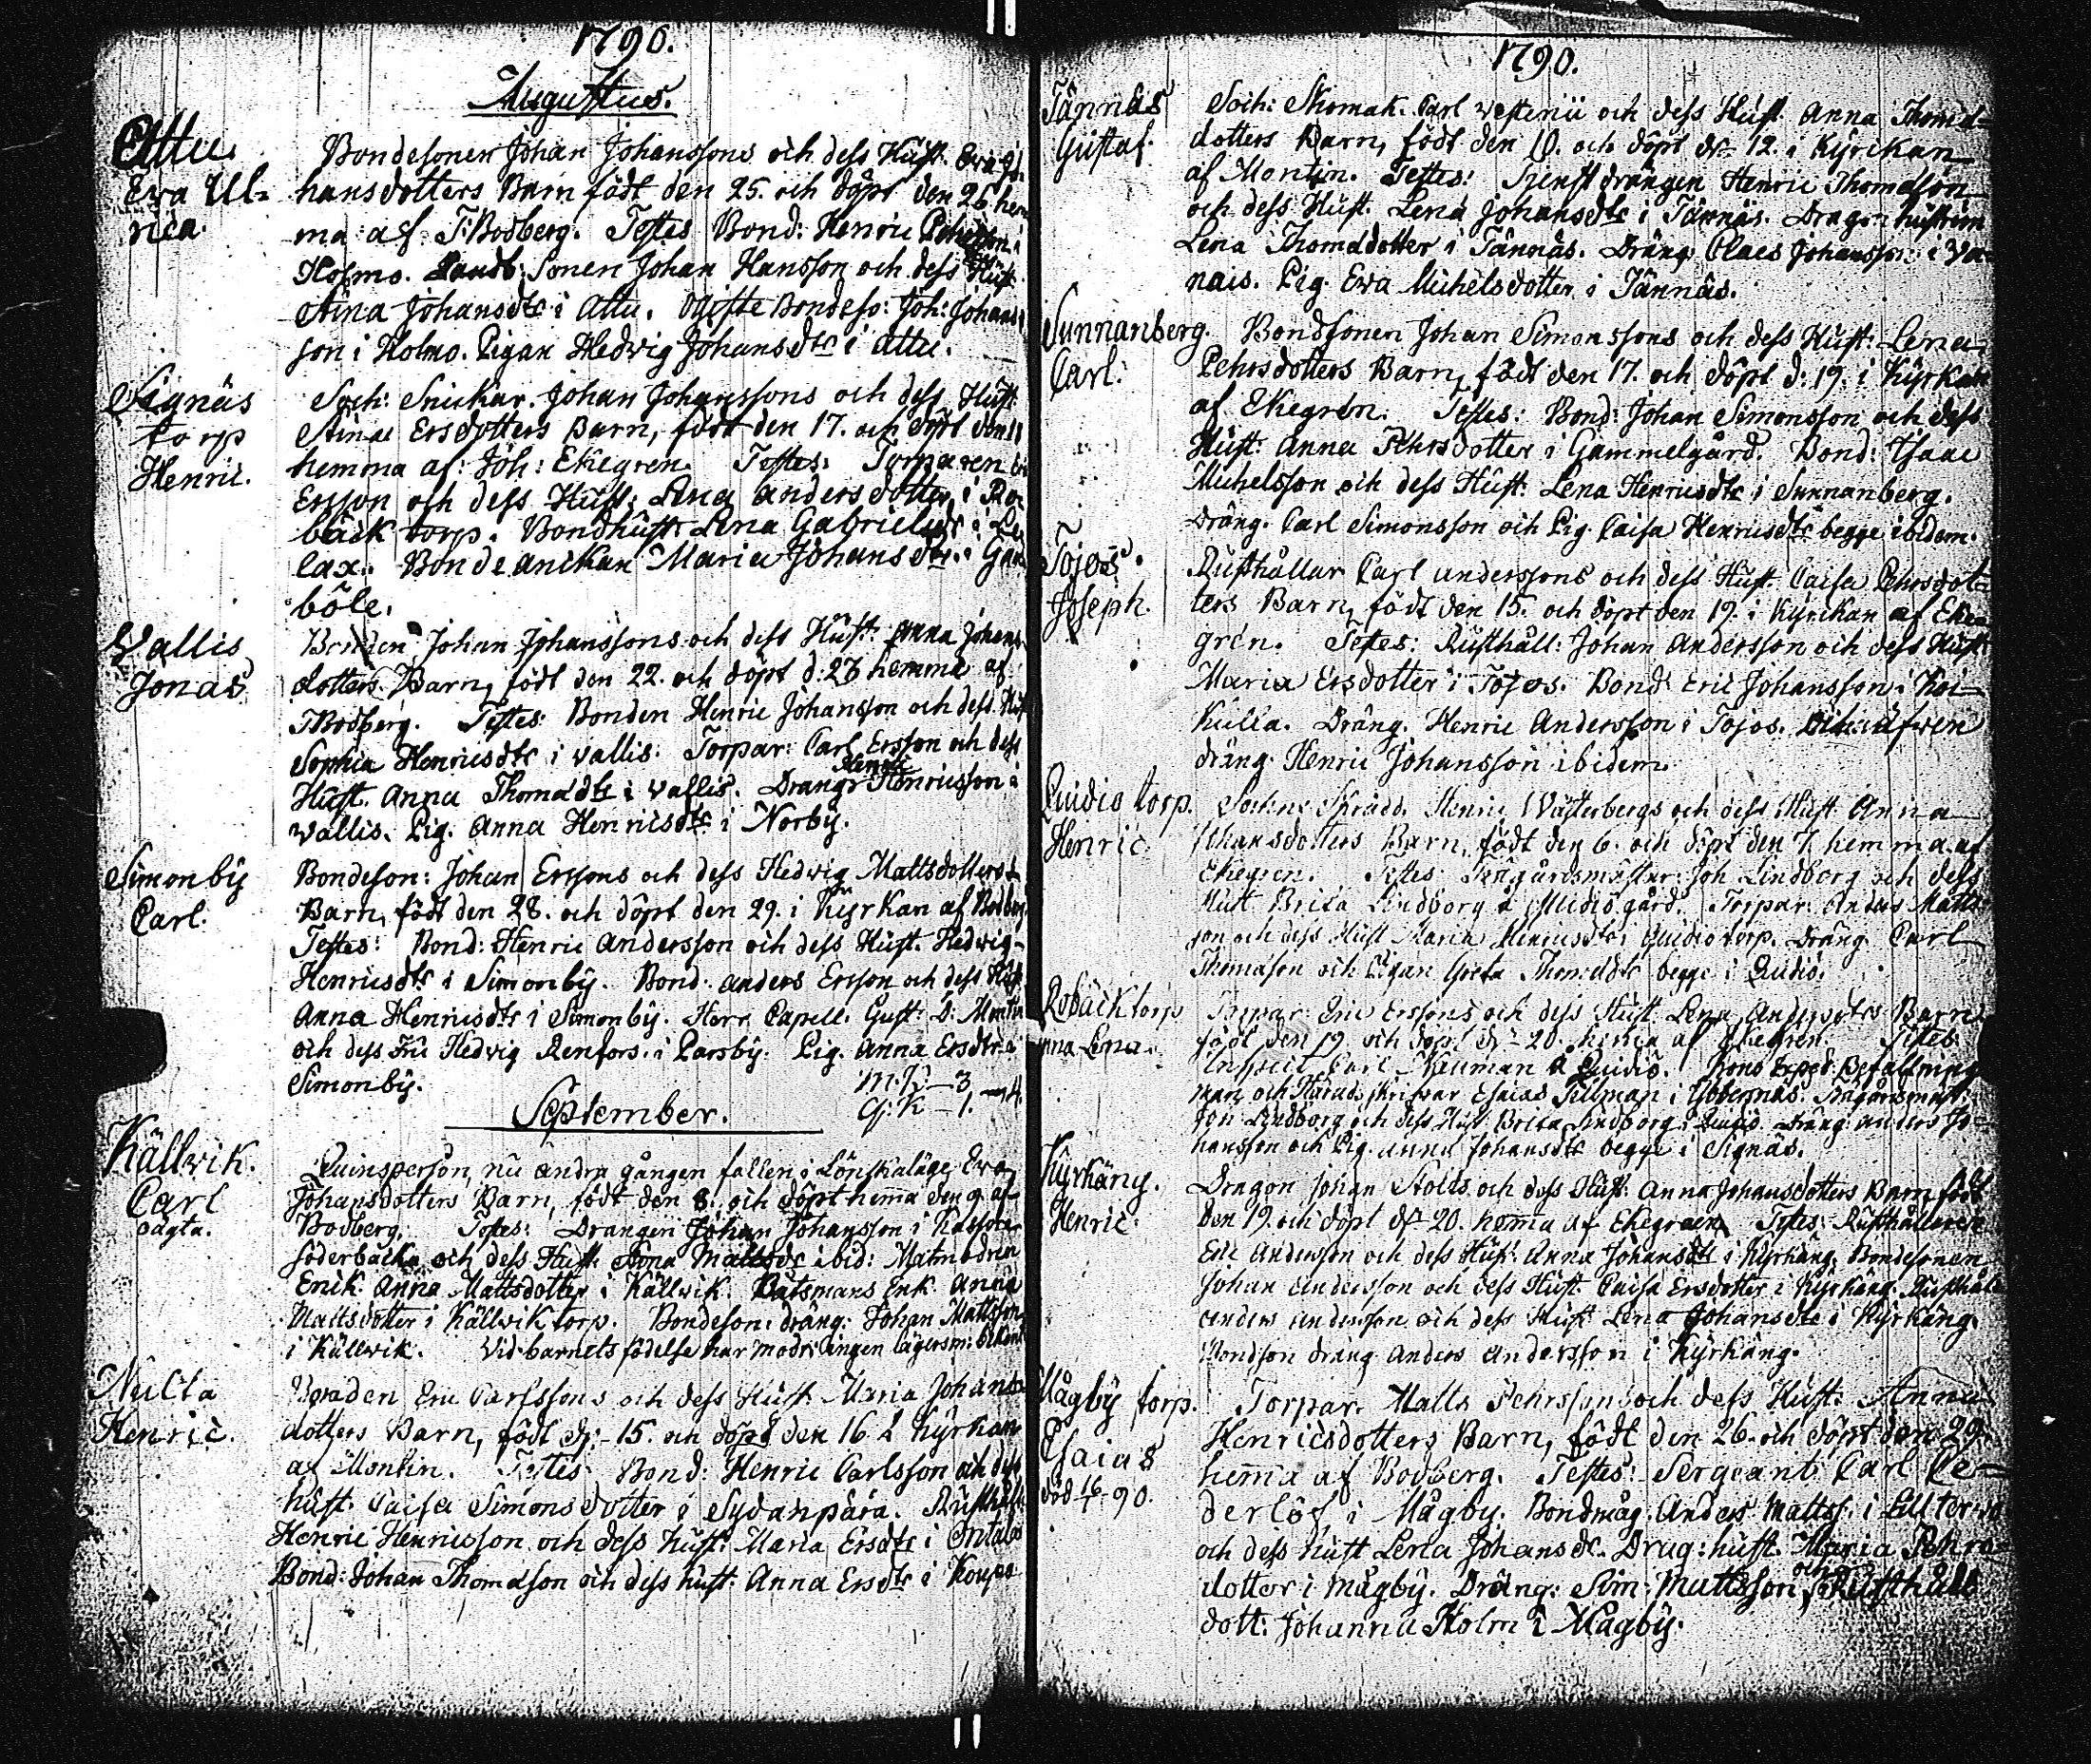 1790.
Augustus.
Attu.
Eva Ul-
rica.
Bondesonen Johan Johanssons och dess Hust. Eva Jo-
hansdotters Barn födt den 25. och döpt den 26 hem
ma af T: Bodberg. Testes Bond: Henric
Holmo. Landb: Sonen Johan Hansson och dess Hust
Stina Johansdtr i Attu. Ogifte Bondeso: Joh: Johans
son i Holmo. Pigan Hedvig Johansdtr i Attu.
Signäs
torp
Henric.
Soch: Snickar. Johan Johanssons och dess Hust
Stina Ersdotters Barn, födt den 17. och döpt den
hemma af: Joh: Ekegren. Testes: Torparen
Ersson och dess Hust: Lena Andersdotter i Ro-
bäck torp. Bondhust: Lena Gabrielsdr i
lax. Bonde änckan Maria Johansdtr i
böle.
Vallis
Jonas
Bonden Johan Johanssons och dess Hust: Anna Johans
dotters Barn, födt den 22. och döpt d: 23 hemma af
T Bodberg. Testes: Bonden Henric Johansson och dess Hust
Sophia Henricsdtr i Vallis. Torpar: Carl Ersson och dess
Hust. Anna Thomasdtr i Vallis. Dräng: Henric Henricsson i
Vallis. Pig. Anna Henricsdtr i Norby.
Simonby
Carl.
Bondeson: Johan Erssons och dess Hedvig Mattsdotters
Barn, födt den 28. och döpt den 29. i Kyrkan af Bodberg
Testes: Bond: Henric Andersson och dess Hust. Hedvig
Henricsdtr i Simonby. Bond. Anders Ersson och dess Hust
Anna Henricsdtr i Simonby. Herr Capell. Gust: D: Montin
och dess Fru Hedvig Renfors. i Parsby. Pig. Anna Ersdtr i
Simonby.
M. K. – 3
Q: K – 1. – 4.
September.
Källvik.
Carl
oägta.
Quinsperson, nu andra gången fallen i Lönskaläge Eva
Johansdotters Barn, födt den 8. och döpt hemma den 9. af
Bodberg. Testes: Drängen Johan Johansson i
Söderbacka och dess Hust. Mattsdr ibid: Matmodren
Enk. Anna Mattsdotter i Källvik. Båtsmans Enk. Anna
Mattsdotter i Källvik torp. Bondeson: dräng: Johan Mattsson
i Källvik. Vid barnets födelse har modr: ingen lägersm: bekänt
Nulta
Henric.
Bonden Eric Carlssons och dess Hust: Maria Johans
dotters Barn, födt d: 15. och döpt den 16 i Kyrkan
af Montin. Testes Bond: Henric Carlsson och dess
hust. Caisa Simonsdotter i Sydanpära. Rusthåll
Henric Henricsson och dess hust: Maria Ersdtr i Ontala
Bond: Johan Thomasson och dess hust: Anna Ersdtr i
1790.
Tännäs
Gustaf.
Soch: Skomak. Carl Vesterii och dess Hust. Anna Thomas-
dotters Barn, födt den 10. och döpt d: 12. i Kyrckan
af Montin. Testes: drängen Henric Thomasson
och dess Hust. Lena Johansdtr i Tännäs. Dragon hustrun
Lena Thomasdotter i Tännäs. Dräng Claes Johansson i
nais. Pig. Eva Michelsdotter i Tännäs.
Sunnanberg.
Carl.
Bondsonen Johan Simonssons och dess Hust: Lena
Pehrsdotters Barn, födt den 17. och döpt d: 19. i Kyrkan
af Ekegrén. Testes: Bond: Johan Simonsson och dess
Hust: Anna Pehrsdotter i Gammelgård. Bond: Isaac
Michelsson och dess Hust: Lena Henricsdtr i Sunnanberg.
Dräng. Carl Simonsson och Pig Caisa Henricsdtr begge ibidem.
Tojos.
Joseph.
Rusthållar Carl Anderssons och dess Hust. Caisa Pehrsdot-
ters Barn, födt den 15. och döpt den 19. i Kyrckan af Eke-
grén. Testes: Rusthåll: Johan Andersson och dess Hust
Maria Ersdotter i Tojos. Bond: Eric Johansson i Koi-
kulla. Dräng. Henric Andersson i Tojos. äfven
dräng. Henric Johansson ibidem.
Quidio torp.
Henric.
Henric Västerbergs och dess Hust. Anna
Johansdotters Barn, födt den 6. och döpt den 7. hemma af
Ekegren. Testes: Trägårdsmästar: Joh Lindborg och dess
Hust Brita Lindborg å Quidio gård. Torpar. Anders Matts-
son och dess Hust Maria Henricsdtr i Quidio torp. Dräng. Carl
Thomason och Pigan Greta Thomasdtr begge i Quidio.
Robäck torp
Anna Lena.
Torpar: Eric Erssons och dess Hust. Lena Andersdtrs Barn
födt den 19. och döpt d: 20. hemma af Ekegren. Testes:
Inspect Carl Nauman å Quidio. Krono Exped: Befallnings
man och Härads skrifvar Esaias Tillman i Ybbernäs. Trägårdsmäst:
Joh Lindborg och dess Hust Brita Lindborg i Quidio. Dräng: Anders Jo-
hansson och Pig. Anna Johansdtr begge i Signäs.
Kyrkäng.
Henric.
Dragon Johan Stolts och dess Hust: Anna Johansdotters Barn födt
den 19. och döpt d: 20. hemma af Ekegren. Testes: Rusthållaren
Eric Andersson och dess Hust: Anna Johansdtr i Kyrkäng. Bondesonen
Johan Andersson och dess Hust. Caisa Ersdotter i Kyrkäng. Rusthåll
Anders Andersson och dess Hust Lena Johansdtr i Kyrkäng.
Bondson dräng Anders Andersson i Kyrkäng.
Mågby torp.
Esaias
död 16 90.
Torpar. Matts Pehrssons och dess Hust: Anna
Henricsdotters Barn, födt den 26. och döpt den 29.
hemma af Bodberg. Testes: Sergeant Carl Ce-
derlöf i Mågby. Bondmåg. Anders Mattss. i
och dess hust Lena Johansdr. Drag: hust. Maria Pehrs-
dotter i Mågby. Dräng: Sim: Mattsson, och Rusthåll
dott: Johanna Holm i Mågby.